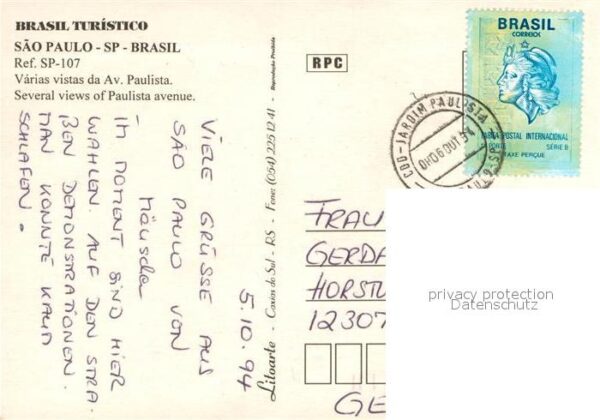 BRASIL TURÍSTICO
SÃO PAULO - SP - BRASIL
Ref. SP-107
Várias vistas da Av. Paulista.
Several views of Paulista avenue.
Litoarte - Caxias do Sul - RS - Fone: (054) 225 12 41 - Reprodução Proibida
RPC
BRASIL
CORREIOS
CARTA POSTAL INTERNACIONAL
1º PORTE SÉRIE B
TAXE PERÇUE
JARDIM PAULISTA
06 OUT 94
5.10.94
VIELE GRÜSSE AUS
SÃO PAULO VON
MÄUSCLE
IM MOMENT SIND HIER
WAHLEN. AUF DEN STRA
ßEN DEMONSTRATIONEN.
MAN KONNTE KAUM
SCHLAFEN.
FRAU
GERDA
HORST
12307
GE
privacy protection
Datenschutz